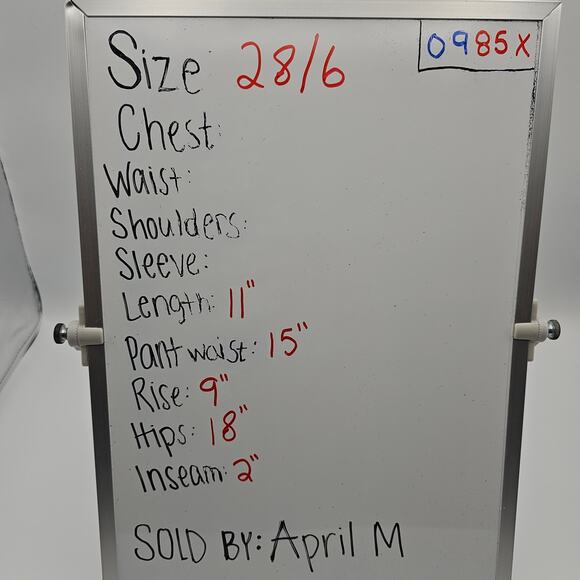 Size 28/6
0985X
Chest:
Waist:
Shoulders:
Sleeve:
Length: 11"
Pant waist: 15"
Rise: 9"
Hips: 18"
Inseam: 2"
SOLD BY: April M